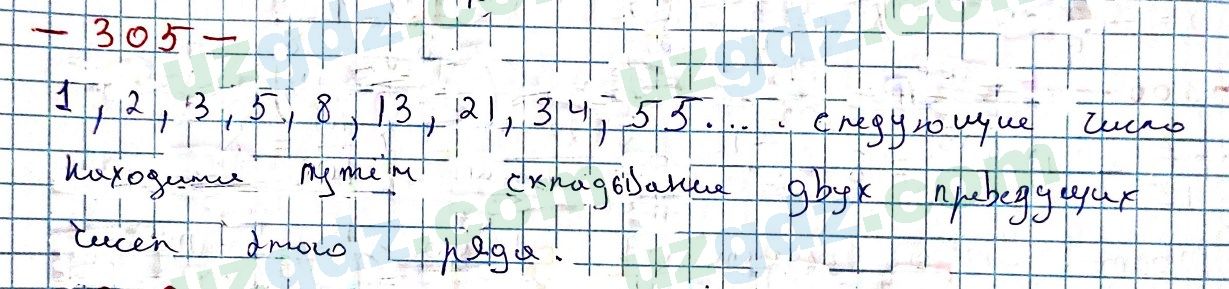 - 305 -
1, 2, 3, 5, 8, 13, 21, 34, 55.... следующие число
находите путём складывание двух преведущих
чисел этого ряда.